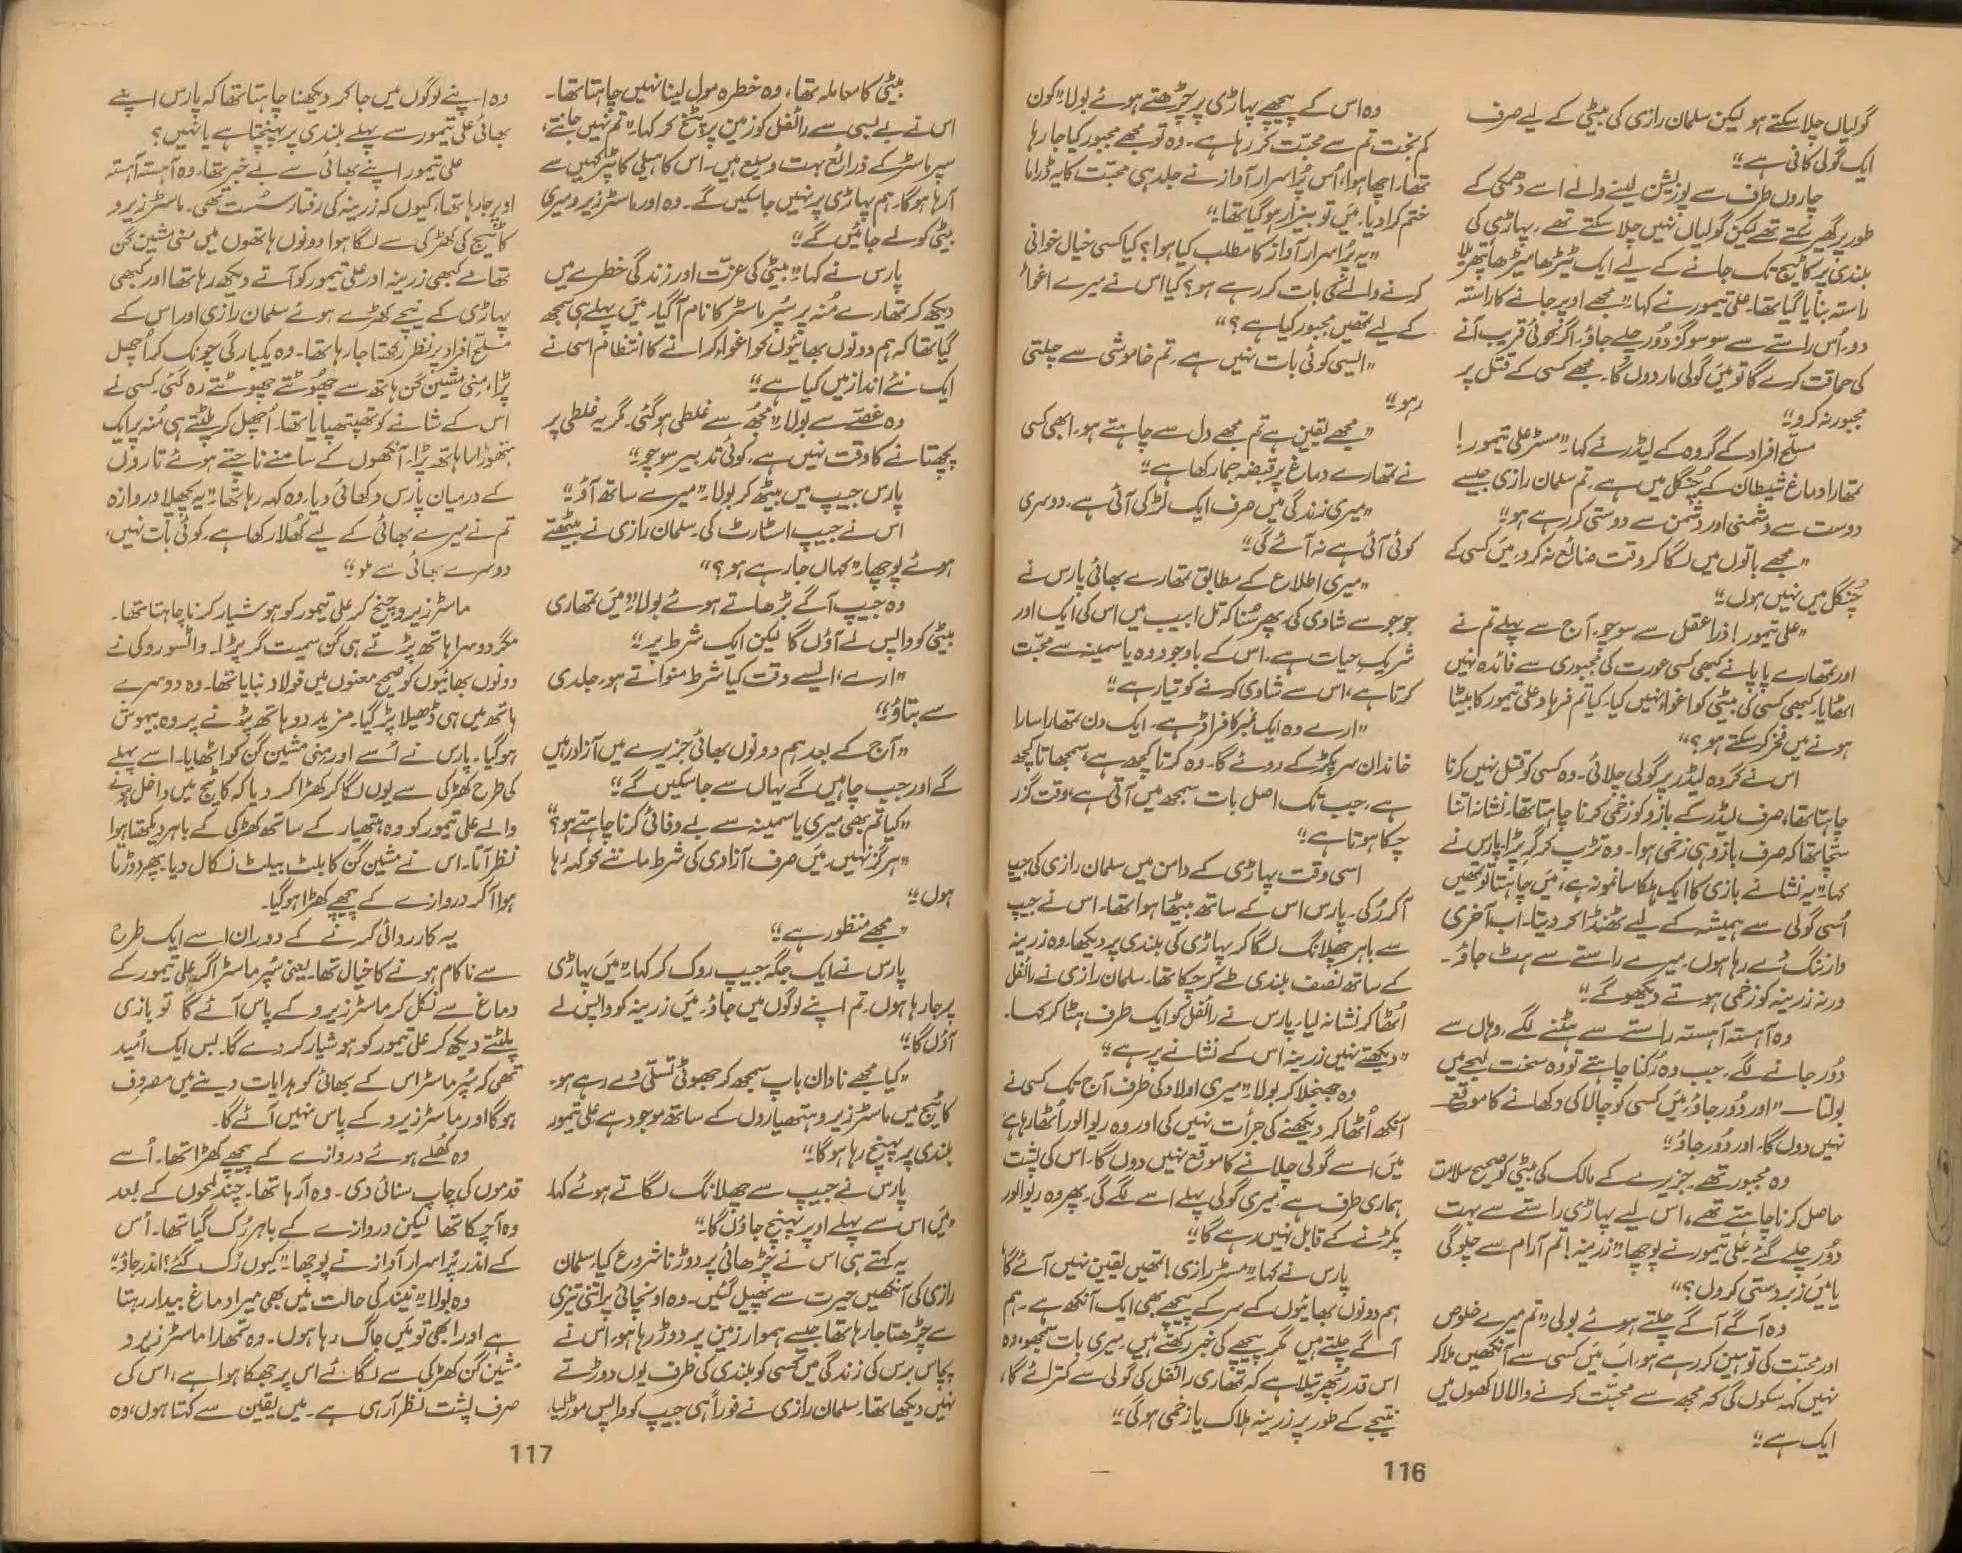 گولیاں چلا سکتے ہو لیکن سلمان رازی کی بیٹی کے لیے صرف
ایک گولی کافی ہے"
چاروں طرف سے پوزیشن لینے والے اسے دھمکی کے
طور پر گھیر سکتے تھے لیکن گولیاں نہیں چلا سکتے تھے۔ پہاڑی کی
بلندی پر کاٹیج تک جانے کے لیے ایک ٹیڑھا میڑھا پتھریلا
راستہ بنایا گیا تھا۔ علی تیمور نے کہا "مجھے اوپر جانے کا راستہ
دو۔ اُس راستے سے سو سو گز دُور چلے جاؤ۔ اگر کوئی قریب آنے
کی حماقت کرے گا تو میں گولی مار دوں گا۔ مجھے کسی کے قتل پر
مجبور نہ کرو"
مسلح افراد کے گروہ کے لیڈر نے کہا "مسٹر علی تیمور!
تمھارا دماغ شیطان کے چُنگل میں ہے۔ تم سلمان رازی جیسے
دوست سے دشمنی اور دشمن سے دوستی کر رہے ہو"
"مجھے باتوں میں لگا کر وقت ضائع نہ کرو۔ میں کسی کے
چُنگل میں نہیں ہوں"
"علی تیمور! ذرا عقل سے سوچو۔ آج سے پہلے تم نے
اور تمھارے پاپا نے کبھی کسی عورت کی مجبوری سے فائدہ نہیں
اٹھایا۔ کبھی کسی کی بیٹی کو اغواء نہیں کیا۔ کیا تم فرہاد علی تیمور کا بیٹا
ہونے میں فخر کر سکتے ہو؟"
اس نے گروہ لیڈر پر گولی چلائی۔ وہ کسی کو قتل نہیں کرنا
چاہتا تھا، صرف لیڈر کے بازو کو زخمی کرنا چاہتا تھا۔ نشانہ اتنا
سچا تھا کہ صرف بازو ہی زخمی ہوا۔ وہ تڑپ کر گر پڑا۔ پارس نے
کہا "یہ نشانے بازی کا ایک ہلکا سا نمونہ ہے، میں چاہتا تو تمھیں
اُسی گولی سے ہمیشہ کے لیے ٹھنڈا کر دیتا۔ اب آخری
وارننگ دے رہا ہوں۔ میرے راستے سے ہٹ جاؤ۔
ورنہ زرینہ کو زخمی ہوتے دیکھو گے"
وہ آہستہ آہستہ راستے سے ہٹنے لگے۔ وہاں سے
دُور جانے لگے۔ جب وہ رُکنا چاہتے تو وہ سخت لہجے میں
بولتا۔ "اور دُور جاؤ۔ میں کسی کو چالاکی دکھانے کا موقع
نہیں دوں گا۔ اور دُور جاؤ"
وہ مجبور تھے۔ جزیرے کے مالک کی بیٹی کو صحیح سلامت
حاصل کرنا چاہتے تھے، اس لیے پہاڑی راستے سے بہت
دُور چلے گئے۔ علی تیمور نے پوچھا "زرینہ! تم آرام سے چلو گی
یا میں زبردستی کروں؟"
وہ آگے آگے چلتے ہوئے بولی "تم میرے خلوص
اور محبت کی توہین کر رہے ہو، اب میں کسی سے آنکھیں ملا کر
نہیں کہہ سکوں گی کہ مجھ سے محبت کرنے والا لاکھوں میں
ایک ہے"
وہ اس کے پیچھے پہاڑی پر چڑھتے ہوئے بولا "کون
کم بخت تم سے محبت کر رہا ہے۔ وہ تو مجھے مجبور کیا جا رہا
تھا۔ اچھا ہوا، اُس پُراسرار آواز نے جلد ہی محبت کا یہ ڈراما
ختم کرا دیا۔ میں تو بیزار ہو گیا تھا"
"یہ پُراسرار آواز کا مطلب کیا ہوا؟ کیا کسی خیال خوانی
کرنے والے کی بات کر رہے ہو؟ کیا اس نے میرے اغواء
کے لیے تمھیں مجبور کیا ہے؟"
"ایسی کوئی بات نہیں ہے۔ تم خاموشی سے چلتی
رہو"
"مجھے یقین ہے تم مجھے دل سے چاہتے ہو۔ ابھی کسی
نے تمھارے دماغ پر قبضہ جما رکھا ہے"
"میری زندگی میں صرف ایک لڑکی آئی ہے۔ دوسری
کوئی آئی ہے نہ آئے گی"
"میری اطلاع کے مطابق تمھارے بھائی پارس نے
جوجو سے شادی کی، پھر سُنا کہ تل ابیب میں اس کی ایک اور
شریکِ حیات ہے۔ اس کے باوجود وہ یاسمینہ سے محبت
کرتا ہے، اس سے شادی کرنے کو تیار ہے"
"ارے وہ ایک نمبر کا فراڈ ہے۔ ایک دن تمھارا سارا
خاندان سر پکڑ کے روئے گا۔ وہ کرتا کچھ ہے، سمجھاتا کچھ
ہے۔ جب تک اصل بات سمجھ میں آتی ہے، وقت گزر
چکا ہوتا ہے"
اسی وقت پہاڑی کے دامن میں سلمان رازی کی جیپ
آ کر رُکی۔ پارس اس کے ساتھ بیٹھا ہوا تھا۔ اس نے جیپ
سے باہر چھلانگ لگا کر پہاڑی کی بلندی پر دیکھا، وہ زرینہ
کے ساتھ نصف بلندی طے کر چکا تھا۔ سلمان رازی نے رائفل
اٹھا کر نشانہ لیا۔ پارس نے رائفل کو ایک طرف ہٹا کر کہا۔
"دیکھتے نہیں زرینہ اس کے نشانے پر ہے"
وہ جھنجلا کر بولا "میری اولاد کی طرف آج تک کسی نے
آنکھ اُٹھا کر دیکھنے کی جرأت نہیں کی اور وہ ریوالور اُٹھا رہا ہے
میں اسے گولی چلانے کا موقع نہیں دوں گا۔ اس کی پشت
ہماری طرف ہے۔ میری گولی پہلے اسے لگے گی۔ پھر وہ ریوالور
پکڑنے کے قابل نہیں رہے گا"
پارس نے کہا "مسٹر رازی! تمھیں یقین نہیں آئے گا
ہم دونوں بھائیوں کے سر کے پیچھے بھی ایک آنکھ ہے۔ ہم
آگے چلتے ہیں مگر پیچھے کی خبر رکھتے ہیں۔ میری بات سمجھو، وہ
اس قدر پھرتیلا ہے کہ تمھاری رائفل کی گولی سے کترائے گا،
نتیجے کے طور پر زرینہ ہلاک یا زخمی ہو گی"
116
بیٹی کا معاملہ تھا، وہ خطرہ مول لینا نہیں چاہتا تھا۔
اس نے بے بسی سے رائفل کو زمین پر پٹخ کر کہا "تم نہیں جانتے،
سپر ماسٹر کے ذرائع بہت وسیع ہیں۔ اس کا ہیلی کاپٹر کہیں سے
آ رہا ہو گا۔ ہم پہاڑی پر نہیں جا سکیں گے۔ وہ اور ماسٹر زیرو میری
بیٹی کو لے جائیں گے"
پارس نے کہا "بیٹی کی عزت اور زندگی خطرے میں
دیکھ کر تمھارے مُنہ پر سُپر ماسٹر کا نام آ گیا۔ میں پہلے ہی سمجھ
گیا تھا کہ ہم دونوں بھائیوں کو اغواء کرانے کا انتظام اسی نے
ایک نئے انداز میں کیا ہے"
وہ غصے سے بولا "مجھ سے غلطی ہو گئی۔ مگر یہ غلطی پر
پچھتانے کا وقت نہیں ہے، کوئی تدبیر سوچو"
پارس جیپ میں بیٹھ کر بولا "میرے ساتھ آؤ"
اس نے جیپ اسٹارٹ کی۔ سلمان رازی نے بیٹھتے
ہوئے پوچھا "کہاں جا رہے ہو؟"
وہ جیپ آگے بڑھاتے ہوئے بولا "میں تمھاری
بیٹی کو واپس لے آؤں گا لیکن ایک شرط پر"
"ارے، ایسے وقت کیا شرط منواتے ہو، جلدی
سے بتاؤ"
"آج کے بعد ہم دونوں بھائی جزیرے میں آزاد رہیں
گے اور جب چاہیں گے یہاں سے جا سکیں گے"
"کیا تم بھی میری یاسمینہ سے بے وفائی کرنا چاہتے ہو؟"
"ہرگز نہیں، میں صرف آزادی کی شرط ماننے کو کہہ رہا
ہوں"
"مجھے منظور ہے"
پارس نے ایک جگہ جیپ روک کر کہا "میں پہاڑی
پر جا رہا ہوں۔ تم اپنے لوگوں میں جاؤ۔ میں زرینہ کو واپس لے
آؤں گا"
"کیا مجھے نادان باپ سمجھ کر جھوٹی تسلی دے رہے ہو۔
کاٹیج میں ماسٹر زیرو ہتھیاروں کے ساتھ موجود ہے علی تیمور
بلندی پر پہنچ رہا ہو گا"
پارس نے جیپ سے چھلانگ لگاتے ہوئے کہا
"میں اس سے پہلے اوپر پہنچ جاؤں گا"
یہ کہتے ہی اس نے چڑھائی پر دوڑنا شروع کیا۔ سلمان
رازی کی آنکھیں حیرت سے پھیل گئیں۔ وہ اونچائی پر اتنی تیزی
سے چڑھتا جا رہا تھا جیسے ہموار زمین پر دوڑ رہا ہو، اس نے
پچاس برس کی زندگی میں کسی کو بلندی کی طرف یوں دوڑتے
نہیں دیکھا تھا۔ سلمان رازی نے فوراً ہی جیپ کو واپس موڑ لیا۔
وہ اپنے لوگوں میں جا کر دیکھنا چاہتا تھا کہ پارس اپنے
بھائی علی تیمور سے پہلے بلندی پر پہنچتا ہے یا نہیں؟
علی تیمور اپنے بھائی سے بے خبر تھا، وہ آہستہ آہستہ
اوپر جا رہا تھا، کیوں کہ زرینہ کی رفتار سُست تھی۔ ماسٹر زیرو
کاٹیج کی کھڑکی سے لگا ہوا دونوں ہاتھوں میں منی مشین گن
تھامے کبھی زرینہ اور علی تیمور کو آتے دیکھ رہا تھا اور کبھی
پہاڑی کے نیچے کھڑے ہوئے سلمان رازی اور اس کے
مسلح افراد پر نظر رکھتا جا رہا تھا۔ وہ یکبارگی چونک کر اُچھل
پڑا، منی مشین گن ہاتھ سے چھوٹتے چھوٹتے رہ گئی۔ کسی نے
اس کے شانے کو تھپتھپایا تھا۔ اُچھل کر پلٹتے ہی مُنہ پر ایک
ہتھوڑا سا ہاتھ پڑا۔ آنکھوں کے سامنے ناچتے ہوئے تاروں
کے درمیان پارس دکھائی دیا، وہ کہہ رہا تھا "یہ پچھلا دروازہ
تم نے میرے بھائی کے لیے کُھلا رکھا ہے۔ کوئی بات نہیں،
دوسرے بھائی سے ملو"
ماسٹر زیرو چیخ کر علی تیمور کو ہوشیار کرنا چاہتا تھا۔
مگر دوسرا ہاتھ پڑتے ہی گن سمیت گر پڑا۔ واٹسورو کی نے
دونوں بھائیوں کو صحیح معنوں میں فولاد بنایا تھا۔ وہ دوسرے
ہاتھ میں ہی ڈھیلا پڑ گیا۔ مزید دو ہاتھ پڑنے پر وہ بیہوش
ہو گیا۔ پارس نے اُسے اور منی مشین گن کو اٹھایا۔ اسے پہلے
کی طرح کھڑکی سے یوں لگا کر کھڑا کر دیا کہ کاٹیج میں داخل ہونے
والے علی تیمور کو وہ ہتھیار کے ساتھ کھڑکی کے باہر دیکھتا ہوا
نظر آتا۔ اس نے مشین گن کا بلٹ بیلٹ نکال دیا۔ پھر دوڑتا
ہوا آ کر دروازے کے پیچھے کھڑا ہو گیا۔
یہ کارروائی کرنے کے دوران اسے ایک طرح
سے ناکام ہونے کا خیال تھا۔ یعنی سُپر ماسٹر اگر علی تیمور کے
دماغ سے نکل کر ماسٹر زیرو کے پاس آئے گا تو بازی
پلٹتے دیکھ کر علی تیمور کو ہوشیار کر دے گا۔ بس ایک اُمید
تھی کہ سُپر ماسٹر اس کے بھائی کو ہدایات دینے میں مصروف
ہو گا اور ماسٹر زیرو کے پاس نہیں آئے گا۔
وہ کُھلے ہوئے دروازے کے پیچھے کھڑا تھا۔ اُسے
قدموں کی چاپ سنائی دی۔ وہ آ رہا تھا۔ چند لمحوں کے بعد
وہ آ چکا تھا لیکن دروازے کے باہر رُک گیا تھا۔ اُس
کے اندر پُراسرار آواز نے پوچھا "کیوں رُک گئے؟ اندر جاؤ"
وہ بولا "نیند کی حالت میں بھی میرا دماغ بیدار رہتا
ہے اور ابھی تو میں جاگ رہا ہوں۔ وہ تمھارا ماسٹر زیرو
مشین گن کھڑکی سے لگائے اس پر جھکا ہوا ہے، اس کی
صرف پشت نظر آ رہی ہے۔ میں یقین سے کہتا ہوں، وہ
117